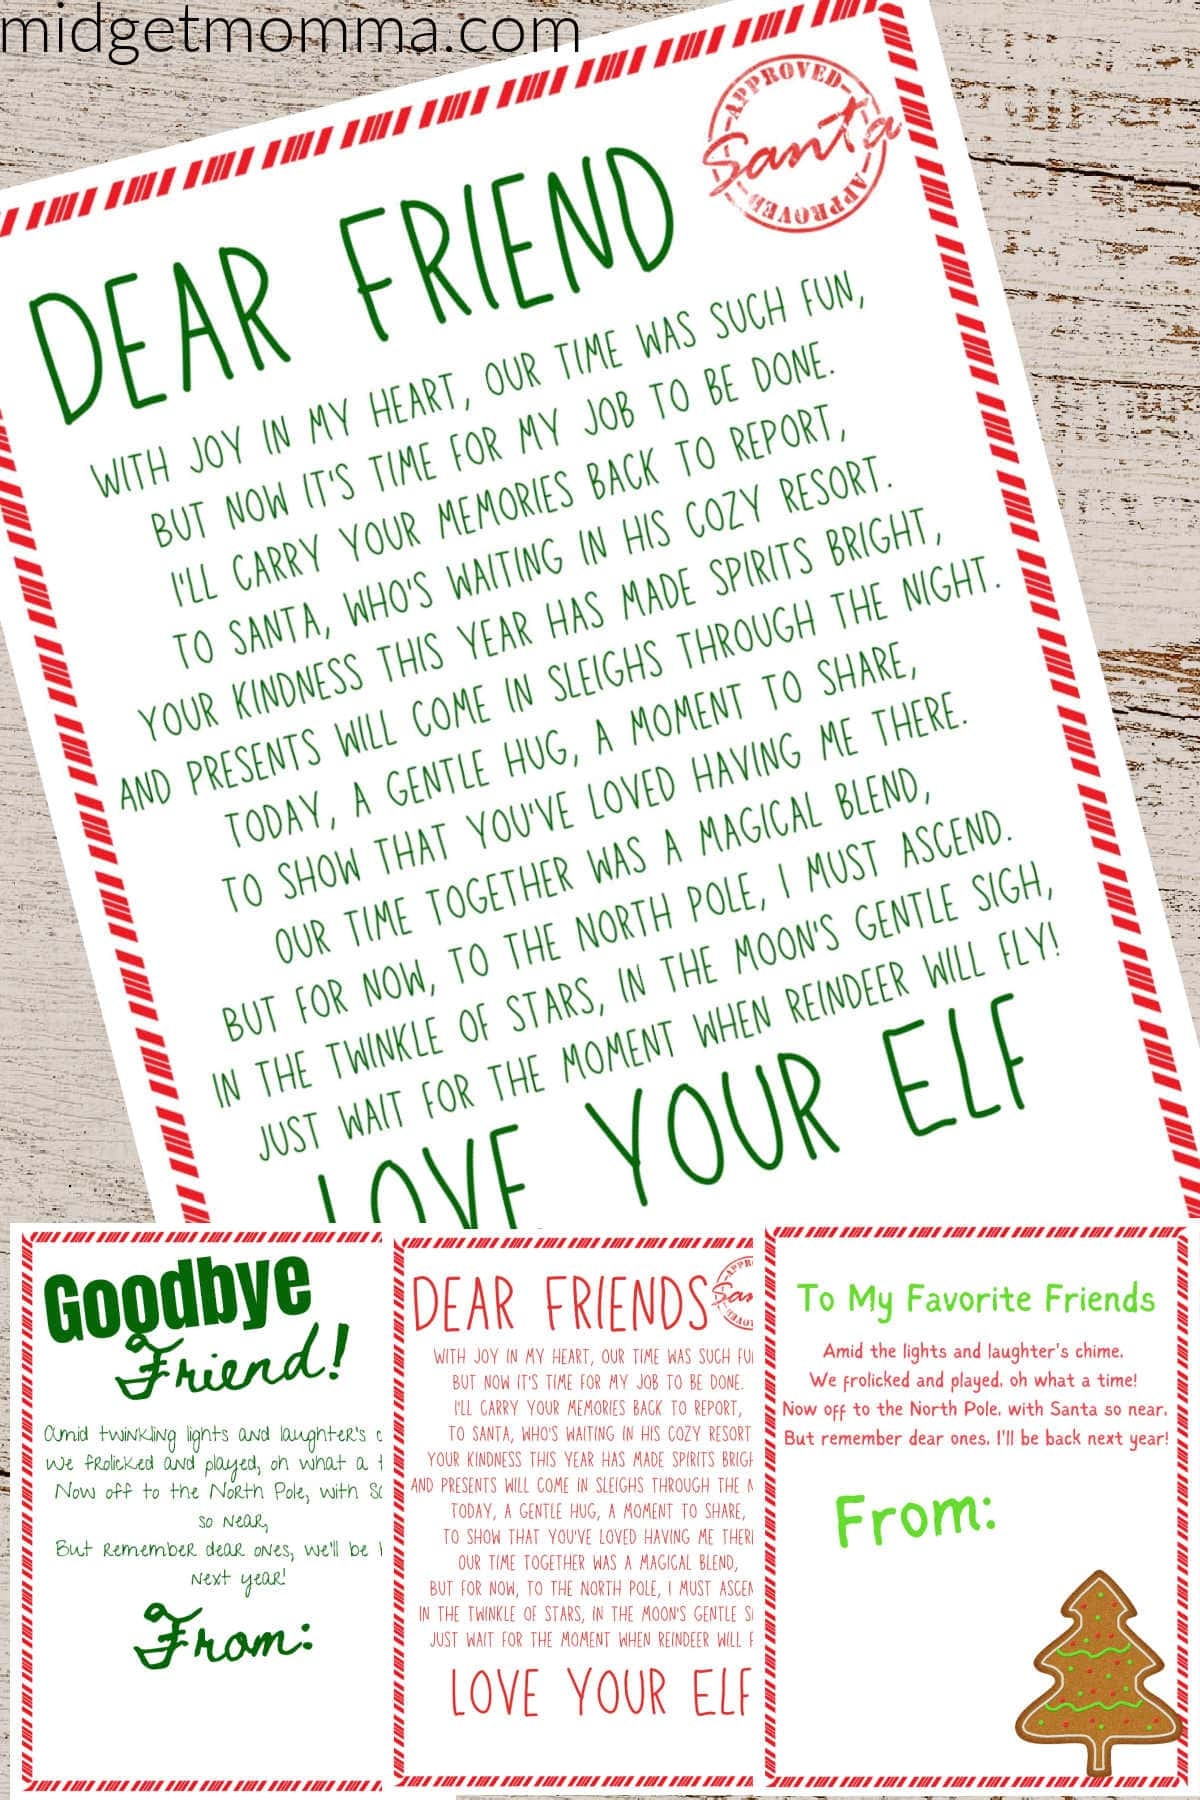 midgetmomma.com
APPROVED
Santa
APPROVED
DEAR FRIEND
WITH JOY IN MY HEART, OUR TIME WAS SUCH FUN,
BUT NOW IT'S TIME FOR MY JOB TO BE DONE.
I'LL CARRY YOUR MEMORIES BACK TO REPORT,
TO SANTA, WHO'S WAITING IN HIS COZY RESORT.
YOUR KINDNESS THIS YEAR HAS MADE SPIRITS BRIGHT,
AND PRESENTS WILL COME IN SLEIGHS THROUGH THE NIGHT.
TODAY, A GENTLE HUG, A MOMENT TO SHARE,
TO SHOW THAT YOU'VE LOVED HAVING ME THERE.
OUR TIME TOGETHER WAS A MAGICAL BLEND,
BUT FOR NOW, TO THE NORTH POLE, I MUST ASCEND.
IN THE TWINKLE OF STARS, IN THE MOON'S GENTLE SIGH,
JUST WAIT FOR THE MOMENT WHEN REINDEER WILL FLY!
LOVE YOUR ELF
Goodbye
Friend!
Amid twinkling lights and laughter's c
We frolicked and played, oh what a t
Now off to the North Pole, with Sa
so near,
But remember dear ones, we'll be b
next year!
From:
DEAR FRIENDS
WITH JOY IN MY HEART, OUR TIME WAS SUCH FU
BUT NOW IT'S TIME FOR MY JOB TO BE DONE.
I'LL CARRY YOUR MEMORIES BACK TO REPORT,
TO SANTA, WHO'S WAITING IN HIS COZY RESORT
YOUR KINDNESS THIS YEAR HAS MADE SPIRITS BRIGH
AND PRESENTS WILL COME IN SLEIGHS THROUGH THE N
TODAY, A GENTLE HUG, A MOMENT TO SHARE,
TO SHOW THAT YOU'VE LOVED HAVING ME THER
OUR TIME TOGETHER WAS A MAGICAL BLEND,
BUT FOR NOW, TO THE NORTH POLE, I MUST ASCEN
IN THE TWINKLE OF STARS, IN THE MOON'S GENTLE S
JUST WAIT FOR THE MOMENT WHEN REINDEER WILL F
LOVE YOUR ELF
To My Favorite Friends
Amid the lights and laughter's chime,
We frolicked and played, oh what a time!
Now off to the North Pole, with Santa so near,
But remember dear ones, I'll be back next year!
From: